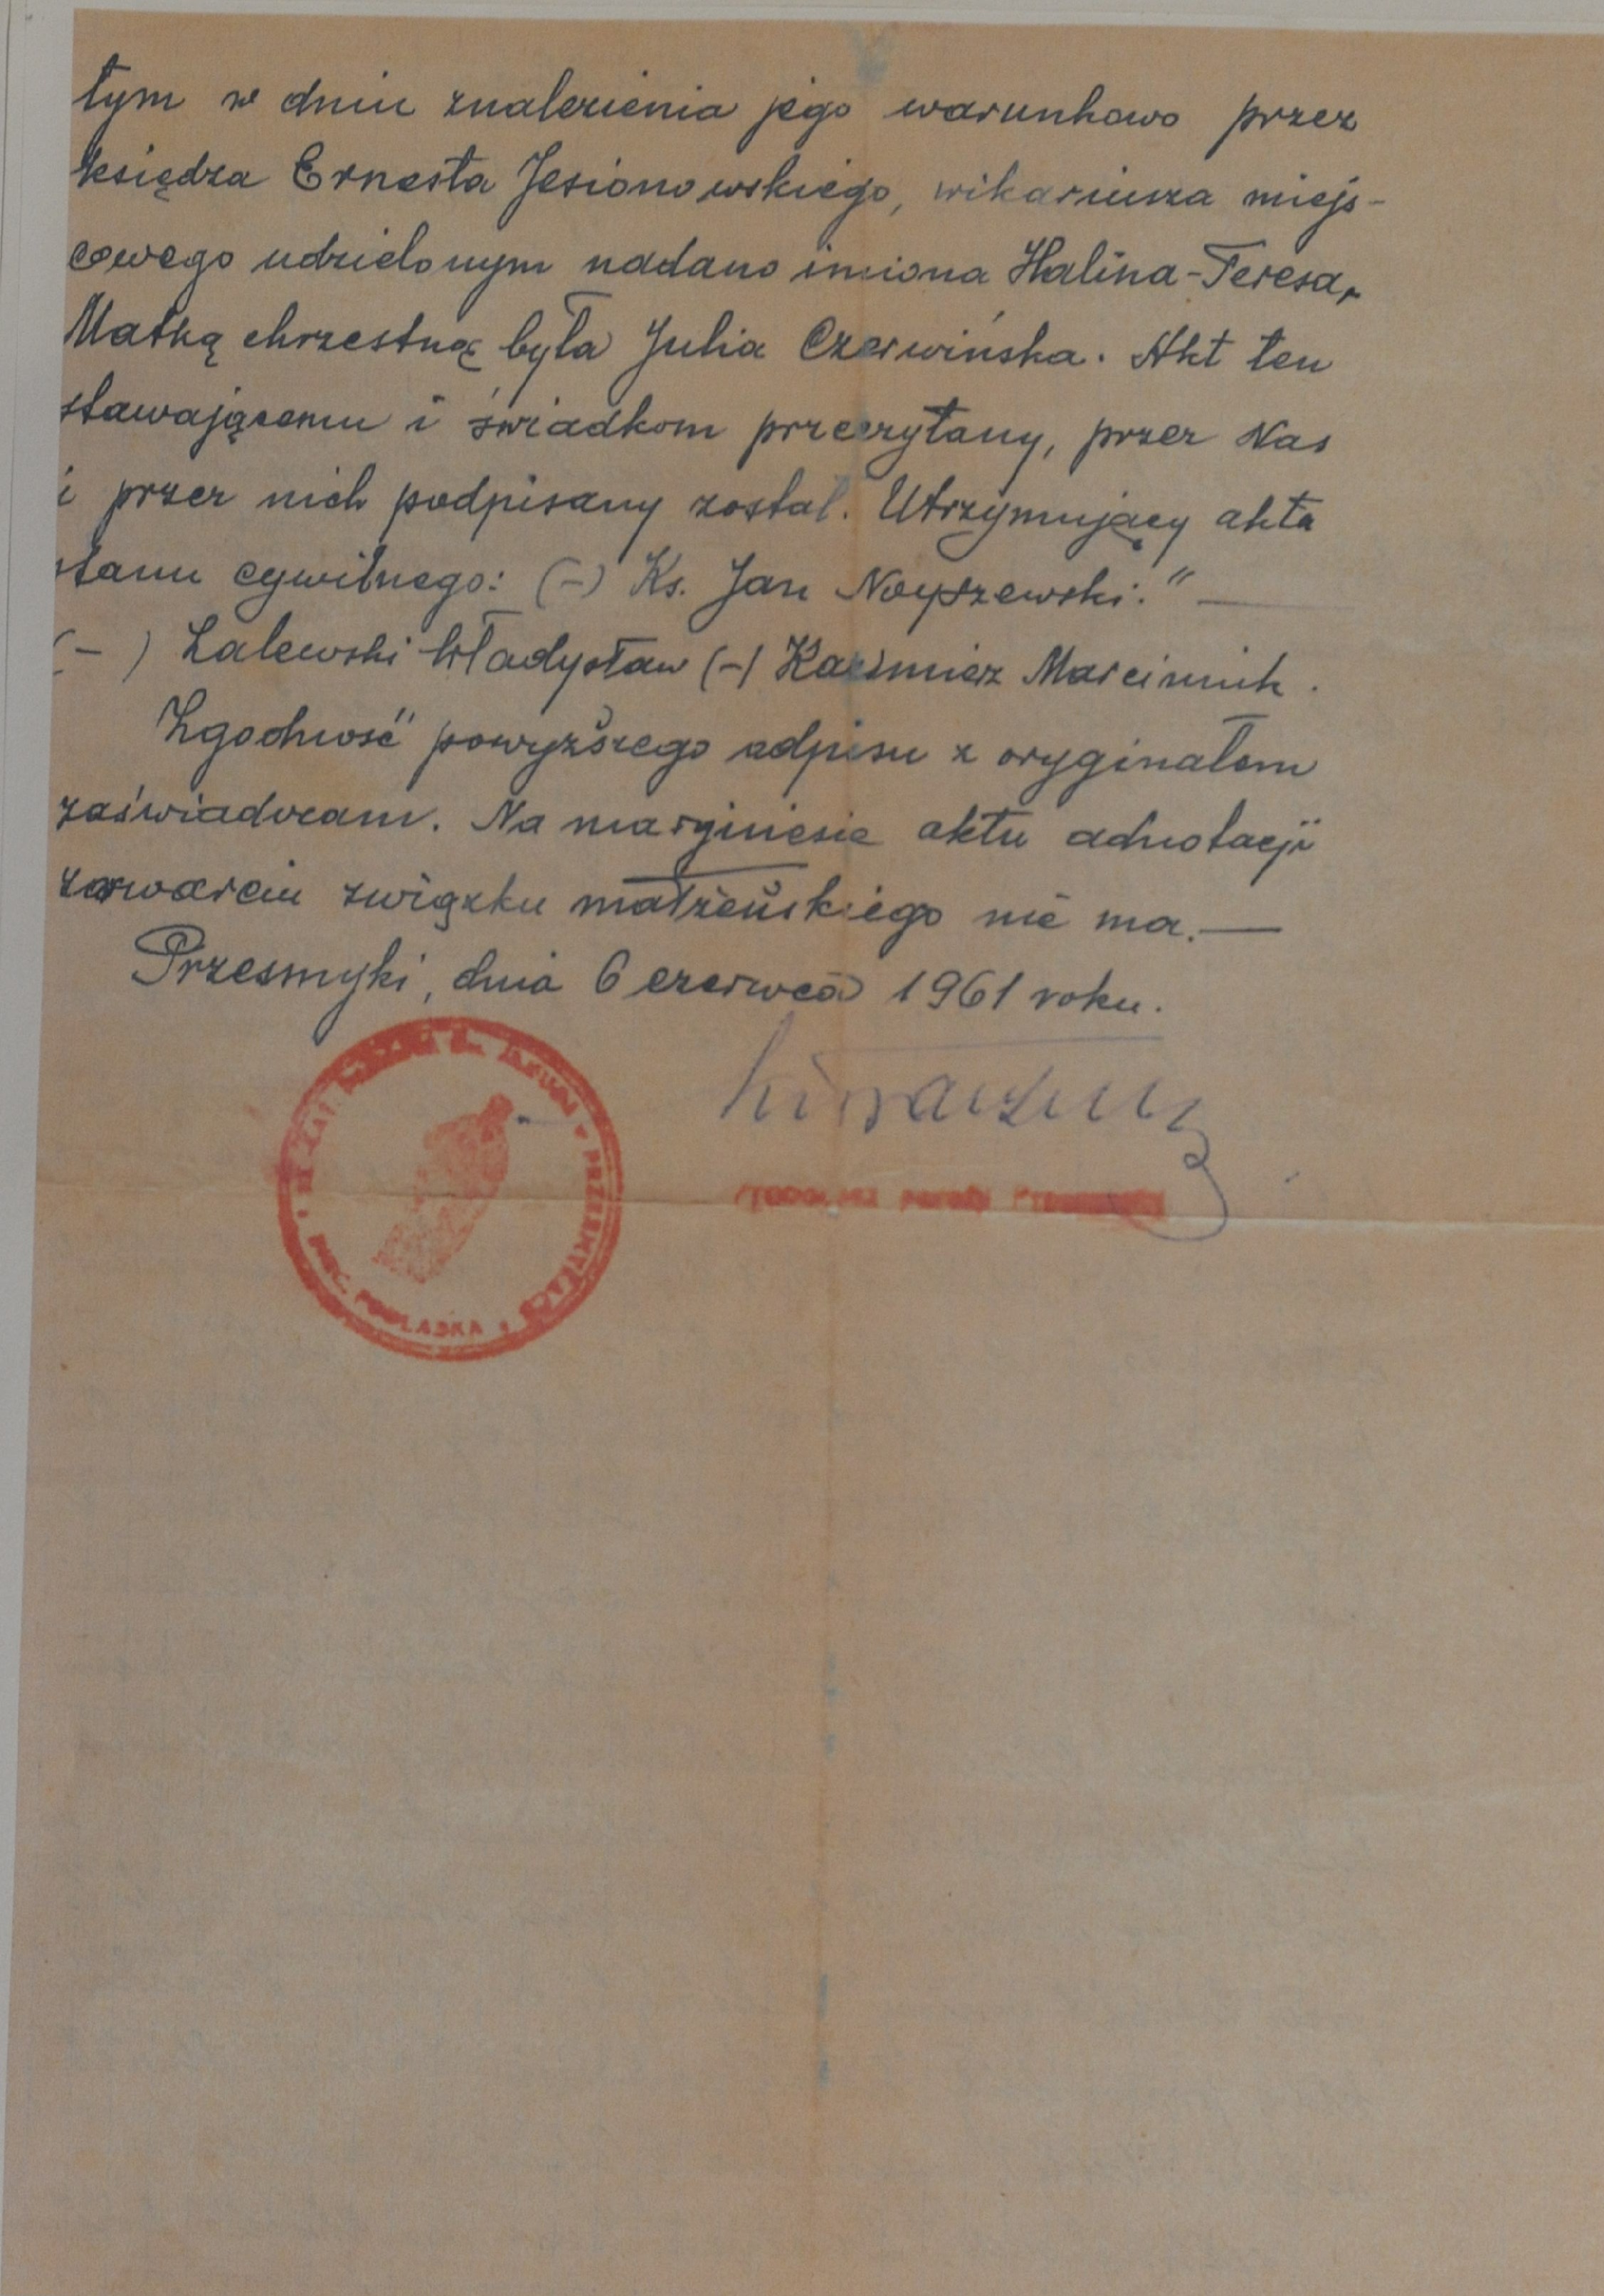 tym w dniu znalezienia jego warunkowo przez
księdza Ernesta Jesionowskiego, wikariusza miejs-
cowego udzielonym nadano imiona Halina-Teresa,
Matką chrzestną była Julia Czerwińska. Akt ten
stawającemu i świadkom przeczytany, przez Nas
i przez nich podpisany został. Utrzymujący akta
stanu cywilnego: (-) Ks. Jan Noyszewski." —
(-) Zalewski Władysław (-) Kazimierz Marciniuk.
Zgodność powyższego odpisu z oryginałem
zaświadczam. Na marginesie aktu adnotacji
zawarciu związku małżeńskiego nie ma. —
Przesmyki, dnia 6 czerwca 1961 roku.
PODLASKA